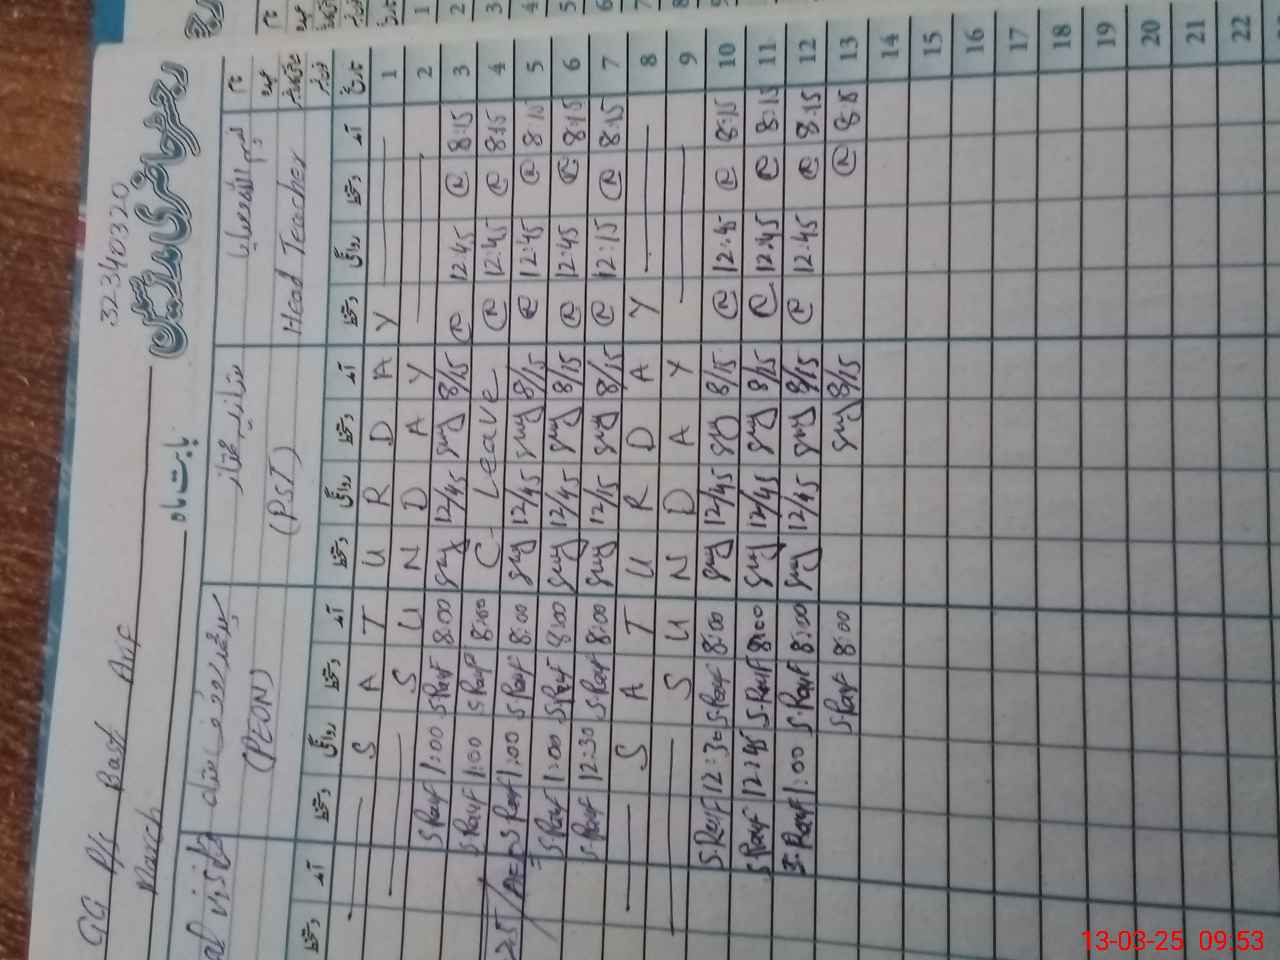 32340320
رجسٹر حاضری مدرسین
GG P/s Bast Arif
March
بابت ماہ
Head Teacher
(PST)
(PEON)
نام
عہدہ
تاریخ آمد دستخط روانگی دستخط آمد دستخط روانگی دستخط آمد دستخط روانگی دستخط آمد دستخط
1 S A T U R D A Y
2 S U N D A Y
3 8:15 12:45 8/15 12/45 8:00 S.Rauf 1:00 S.Rauf
4 8:15 12:45 C- Leave 8:00 S.Rauf 1:00 S.Rauf
5 8:15 12:45 8/15 12/45 8:00 S.Rauf 1:00 S.Rauf
6 8:15 12:45 8/15 12/45 8:00 S.Rauf 1:00 S.Rauf
7 8:15 12:15 8/15 12/15 8:00 S.Rauf 12:30 S.Rauf
8 S A T U R D A Y
9 S U N D A Y
10 8:15 12:45 8/15 12/45 8:00 S.Rauf 12:30 S.Rauf
11 8:15 12:45 8/15 12/45 8:00 S.Rauf 12:45 S.Rauf
12 8:15 12:45 8/15 12/45 8:00 S.Rauf 1:00 S.Rauf
13 8/15 8:00 S.Rauf
14
15
16
17
18
19
20
21
22
13-03-25 09:53